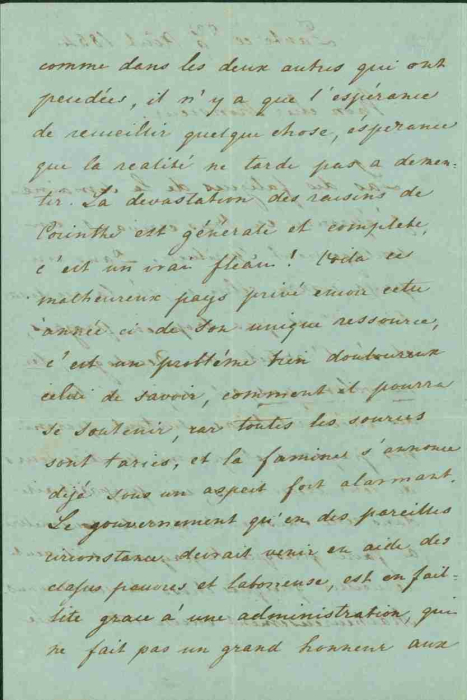 comme dans les deux autres qui ont
pecedées, il n'y a que l'espérance
de recueillir quelque chose, esperance
que la realité ne tarde pas a demen-
tir. La devastation des raisins de
Corinthe est génerale et complete,
c'est un vrai fleau! Voila ce
malheureux pays privé encore cette
année ci de son unique ressource,
c'est un probléme bien douloureux
celui de savoir, comment il pourra
se soutenir, car toutes les sources
sont taries, et la famine s'annonce
déjá sous un aspect fort alarmant.
Le gouvernement qui en des pareilles
circonstance devrait venir en aide des
classes pauvres et laborieuse, est en fail-
lite grace a' une administration, qui
ne fait pas un grand honneur aux